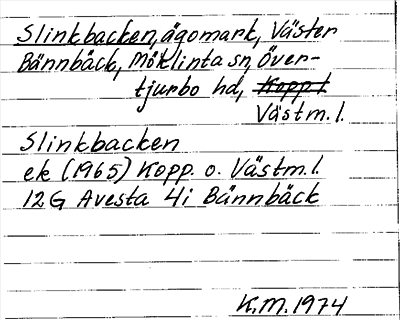 Slinkbacken, ägomark, Väster
Bännbäck, Möklinta sn, Över-
tjurbo hd, Kopp. l.
Västm. l.
Slinkbacken
ek (1965) Kopp. o. Västm. l.
12G Avesta 4i Bännbäck
K.M. 1974